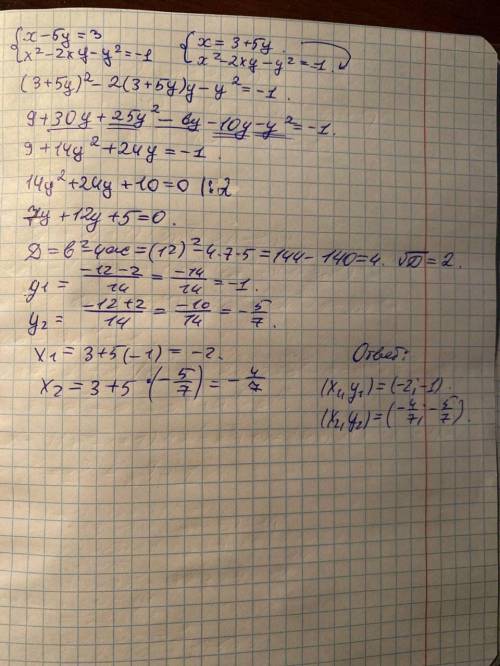 {x-5y=3 {x=3+5y.
x²-2xy-y²=-1 x²-2xy-y²=-1.
(3+5y)²-2(3+5y)y-y²=-1.
9+30y+25y²-6y-10y-y²=-1.
9+14y²+24y=-1.
14y²+24y+10=0 |:2
7y+12y+5=0.
D=b²-4ac=(12)²-4·7·5=144-140=4. √D=2.
y1 = -12-2/14 = -14/14 = -1.
y2 = -12+2/14 = -10/14 = -5/7.
x1=3+5(-1)=-2. Ответ:
x2=3+5·(-5/7)=-4/7 (x1, y1)=(-2;-1).
(x2, y2)=(-4/7;-5/7).